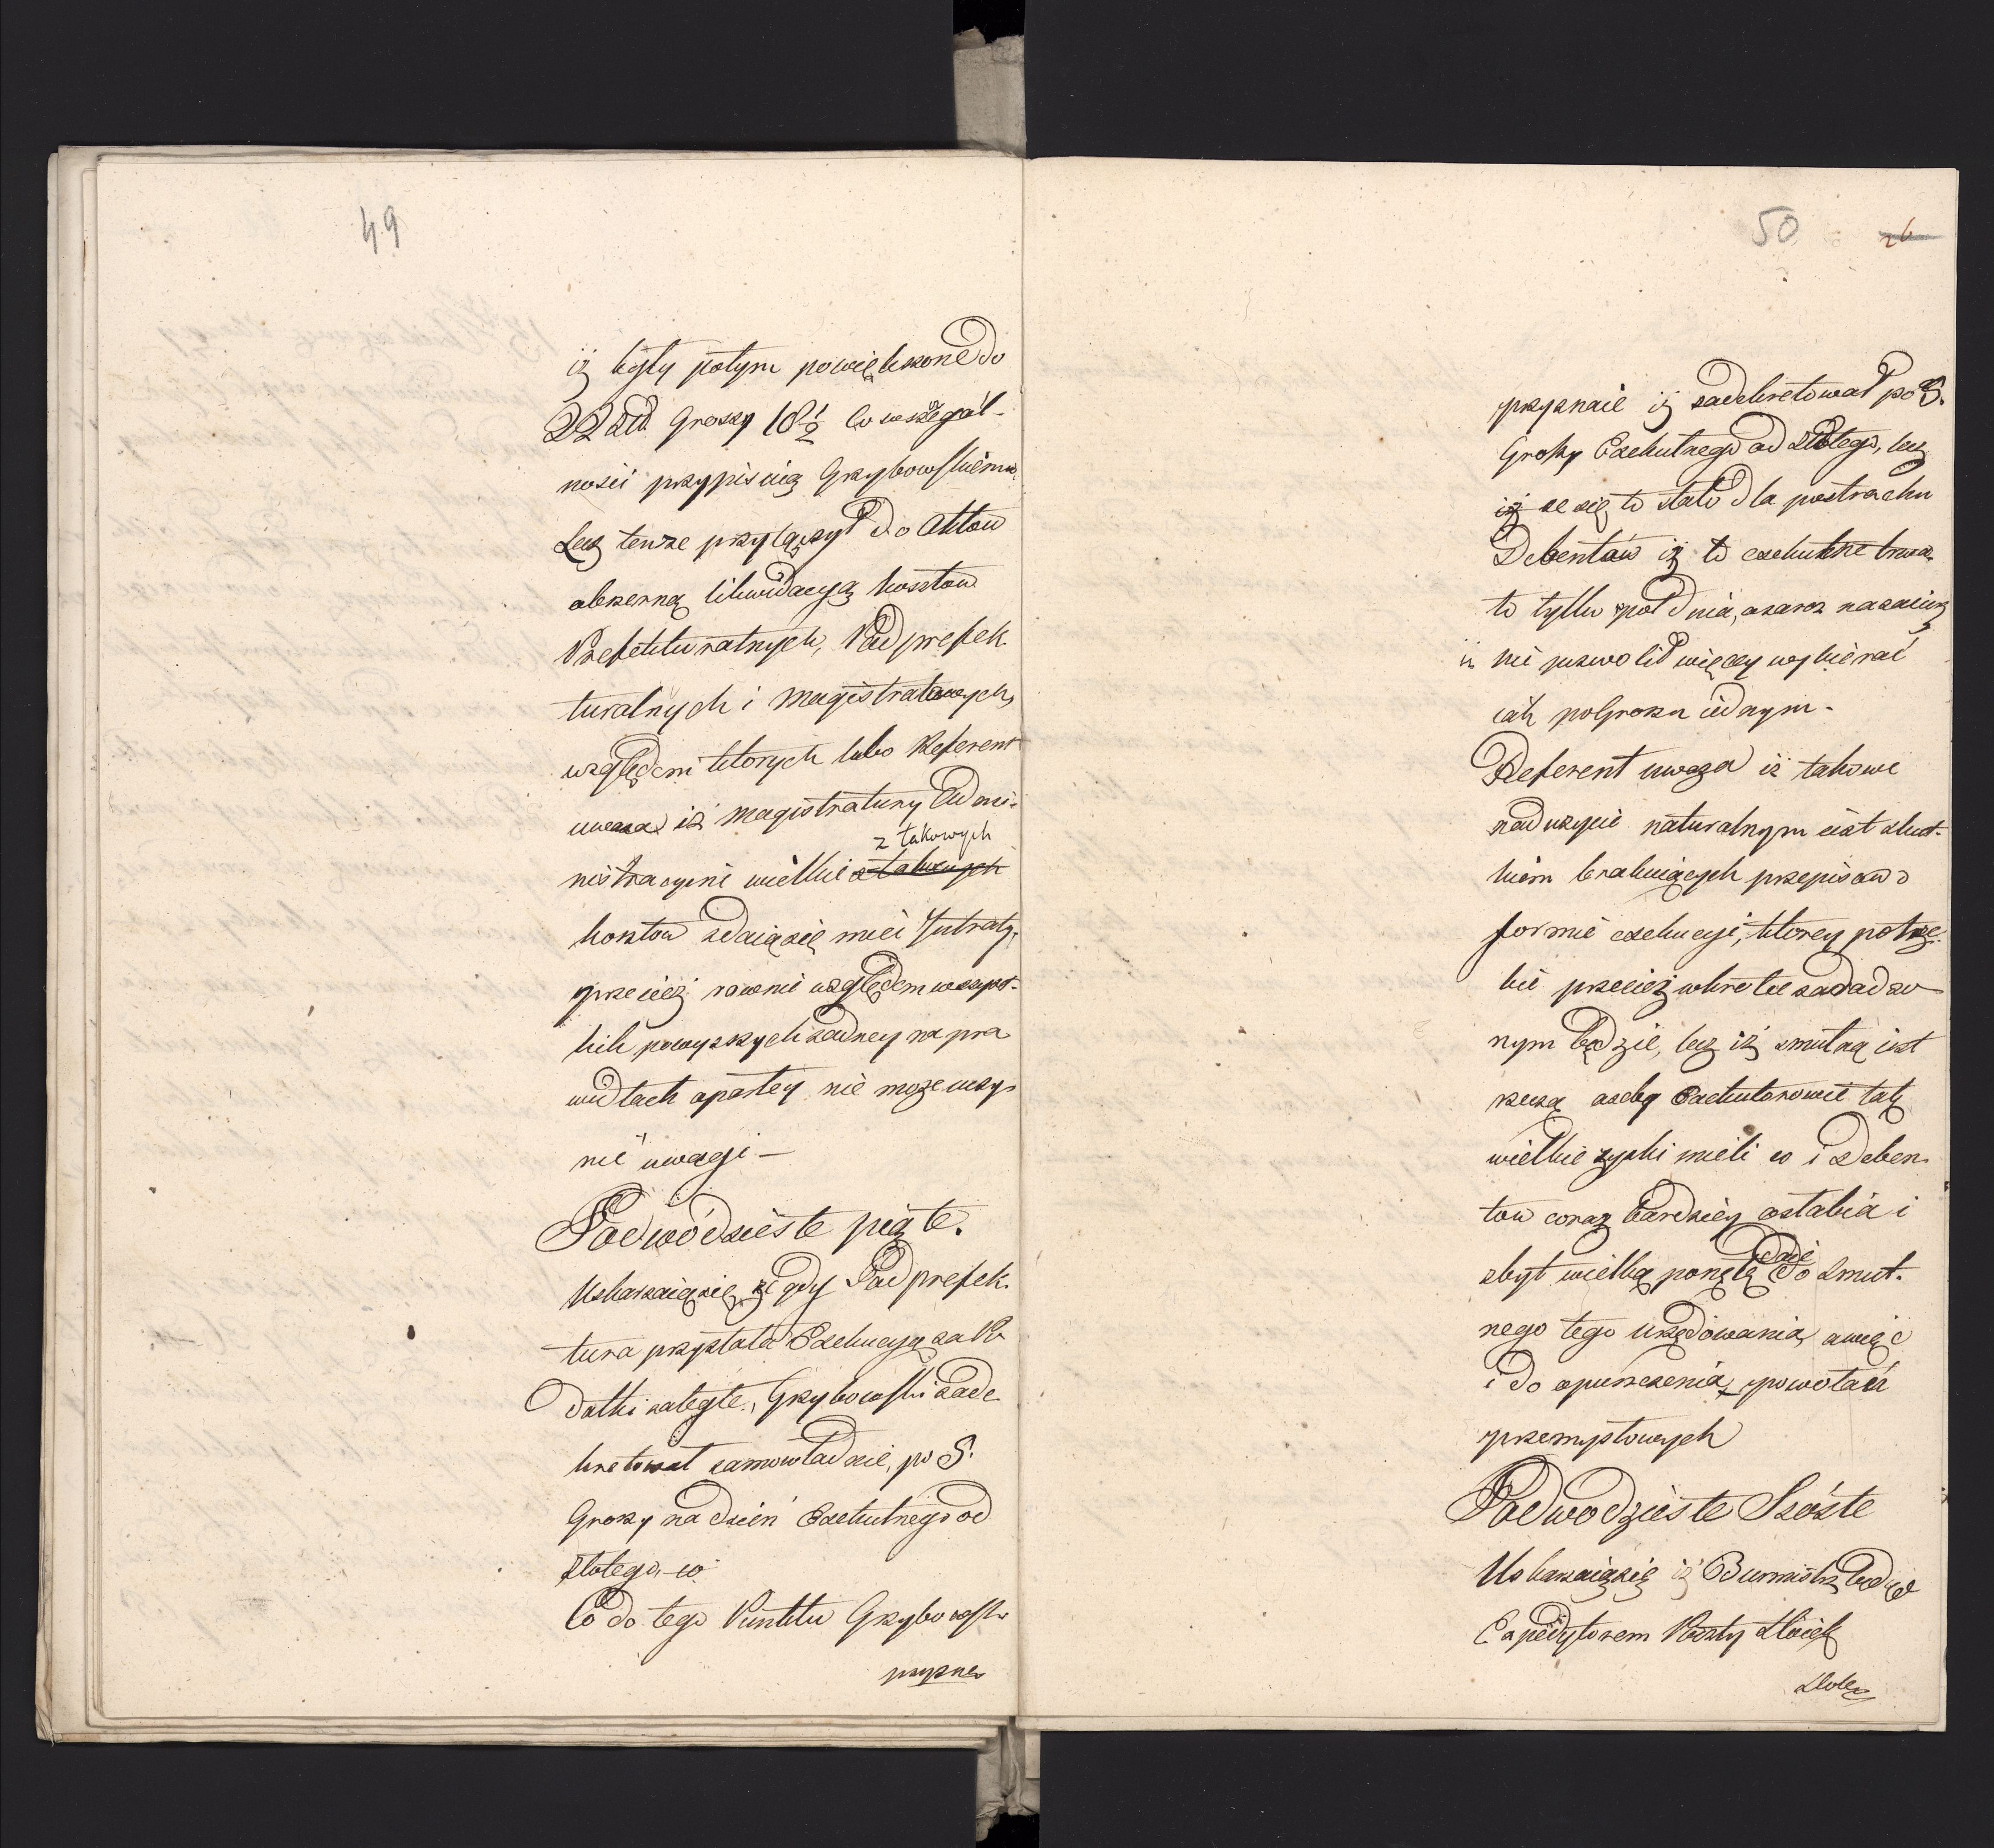 49
iż były potym powiększone do
22 Złł Groszy 18½ Co wszczegól-
nosci przypisuią Grzybowskiemu,
Lecz tenze przyłączył do Aktow
obszerną likwidacyą kosztow
Prefekturalnych, Podprefek-
turalnych i Magistratowych,
względem ktorych lubo Referent
uwaza iż Magistratury Admi-
z takowych
nistracyine wielkie z takowych
kosztow zdaią się mieć Intraty,
przecież rownie względem wszyst-
kich powyzszych zadney na pra
widłach opartey nie moze uczy-
nić uwagi —
Po dwódzieste piąte.
Uskarzaią się, że gdy Podprefek-
tura przysłała Exekucyą za Po
datki zaległe, Grzybowski zade
kretował samowładnie, po 5.
Groszy na dzień Exekutnego od
złotego, co
Co do tego Punktu Grzybowski
przyzna
50 26
przyznaie iż zadekretował po 5.
Groszy Exekutnego od złotego, lecz
iż ze się to stało dla postrachu
Debentów iż to exekutne trwa-
ło tylko poł dnia, a zaraz nazaiutrz
iż nie pozwolił więcey wybierać
iak poł grosza iednym.
Referent uwaza iż takowe
nadużycie naturalnym iest skut-
kiem brakuiących przepisow o
formie exekucyi, ktorey potrze-
bie przecież wkrotce zadadzo
nym będzie, lecz iż smutną iest
rzeczą azeby Exekutorowie tak
wielkie zyski mieli co i Deben-
tow coraz bardziey osłabia i
daie
zbyt wielką ponętę do smut-
nego tego urzędowania, a więc
i do opuszczenia powołań
przemysłowych
Po dwodzieste Szóste
Uskarzaią się iż Burmistrz będąc
Expedytorem Poczty